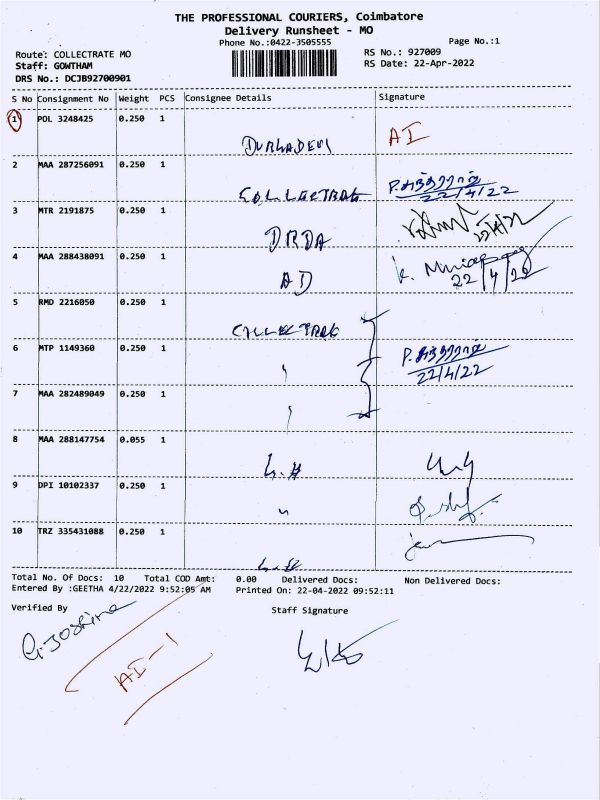 THE PROFESSIONAL COURIERS, Coimbatore
Delivery Runsheet - MO
Phone No.:0422-3505555
Page No.:1
Route: COLLECTRATE MO
RS No.: 927009
Staff: GOWTHAM
RS Date: 22-Apr-2022
DRS No.: DCJB92700901
S No Consignment No Weight PCS Consignee Details Signature
1 POL 3248425 0.250 1 DURGADEVI AI
2 MAA 287256091 0.250 1 COLLECTRAE 22/4/22
3 MTR 2191875 0.250 1 DRDA
4 MAA 288438091 0.250 1 AD 22/4/22
5 RMD 2216050 0.250 1 COLLECTRAE
6 MTP 1149360 0.250 1 22/4/22
7 MAA 282489049 0.250 1
8 MAA 288147754 0.055 1
9 DPI 10102337 0.250 1
10 TRZ 335431088 0.250 1
Total No. Of Docs: 10 Total COD Amt: 0.00 Delivered Docs: Non Delivered Docs:
Entered By :GEETHA 4/22/2022 9:52:05 AM Printed On: 22-04-2022 09:52:11
Verified By Staff Signature
AI-1